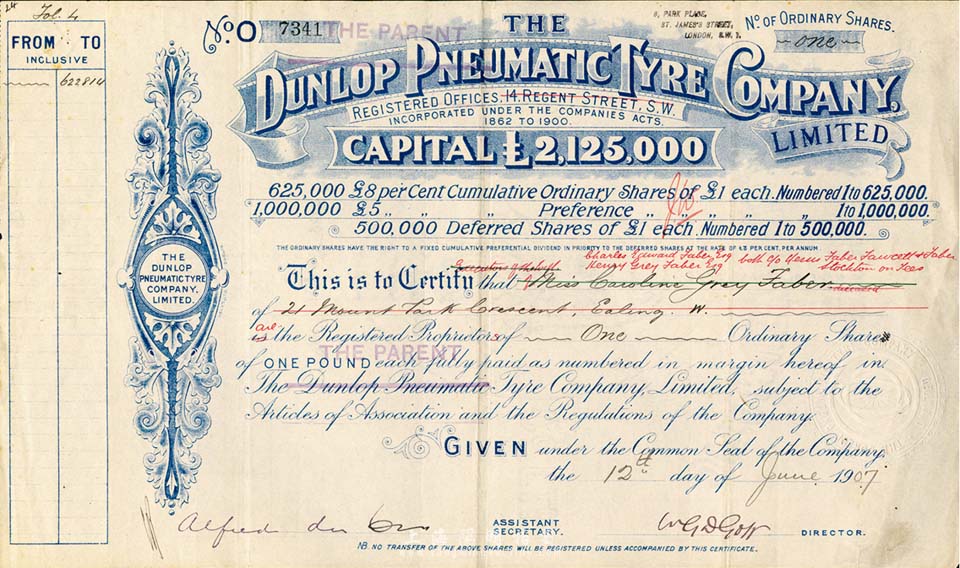 24
Fol. 4
FROM TO
INCLUSIVE
622814
No. O 7341
THE PARENT
THE
8, PARK PLACE,
ST. JAMES'S STREET,
LONDON, S.W.1.
No. OF ORDINARY SHARES.
one
DUNLOP PNEUMATIC TYRE COMPANY,
LIMITED
REGISTERED OFFICES, 14, REGENT STREET, S.W.
INCORPORATED UNDER THE COMPANIES ACTS.
1862 TO 1900.
CAPITAL £2,125,000
625,000 £8 per Cent Cumulative Ordinary Shares of £1 each. Numbered 1 to 625,000.
1,000,000 £5 „ „ „ Preference „ „ „ „ „ 1 to 1,000,000.
500,000 Deferred Shares of £1 each. Numbered 1 to 500,000.
THE ORDINARY SHARES HAVE THE RIGHT TO A FIXED CUMULATIVE PREFERENTIAL DIVIDEND IN PRIORITY TO THE DEFERRED SHARES AT THE RATE OF £8 PER CENT. PER ANNUM
Charles Edward Faber Esq
Henry Grey Faber Esq
both c/o Messrs Faber Fawcett & Faber
Stockton on Tees
Executors of the
This is to Certify that Miss Caroline Grey Faber deceased
of 21 Mount Park Crescent Ealing. W.
are
is the Registered Proprietors of One Ordinary Share
THE PARENT
of ONE POUND each fully paid as numbered in margin hereof in
The Dunlop Pneumatic Tyre Company, Limited, subject to the
Articles of Association and the Regulations of the Company.
GIVEN under the Common Seal of the Company
the 12th day of June 1907
THE
DUNLOP
PNEUMATIC TYRE
COMPANY.
LIMITED.
Alfred du Cros
ASSISTANT
SECRETARY.
DIRECTOR.
NB. NO TRANSFER OF THE ABOVE SHARES WILL BE REGISTERED UNLESS ACCOMPANIED BY THIS CERTIFICATE.